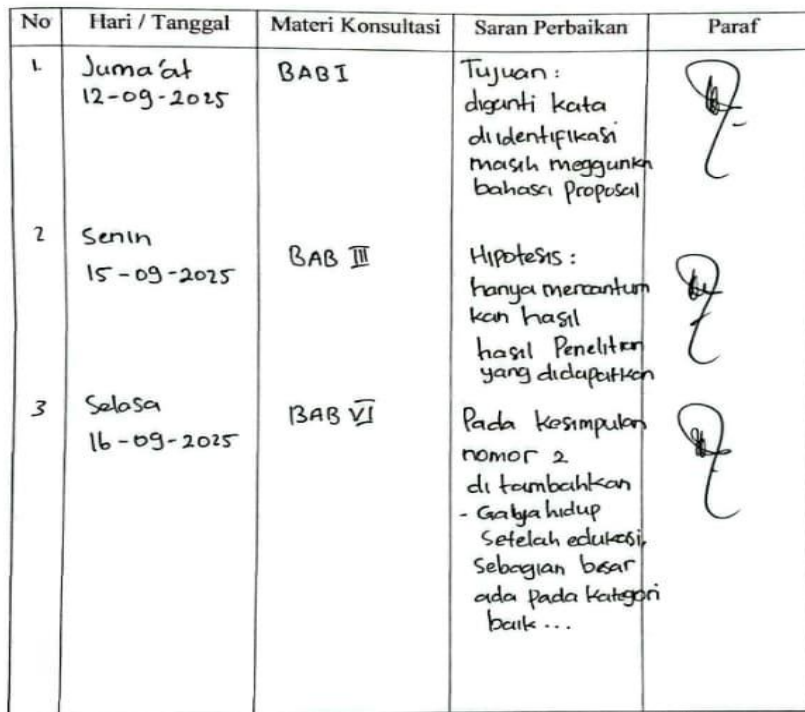 No Hari / Tanggal Materi Konsultasi Saran Perbaikan Paraf
1. Juma'at BAB I Tujuan :
12-09-2025 diganti kata
diidentifikasi
masih meggunkn
bahasa Proposal
2 Senin BAB III Hipotesis :
15-09-2025 hanya mencantum
kan hasil
hasil Penelitian
yang didapatkan
3 Selasa BAB VI Pada kesimpulan
16-09-2025 nomor 2
di tambahkan
- Gabya hidup
Setelah edukasi,
Sebagian besar
ada pada kategori
baik ...